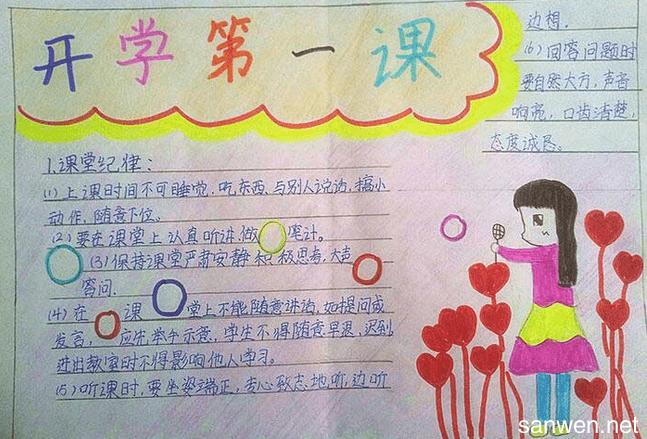 开学第一课
1.课堂纪律:
(1)上课时间不可睡觉.吃东西.与别人说话,搞小
动作,随意下位。
(2)要在课堂上认真听讲.做笔计。
(3)保持课堂严肃安静.积极思考,大声
答问.
(4)在课堂上不能随意讲话,如提问或
发言,应先举手示意,学生不得随意早退,迟到
进出教室时不得影响他人学习。
(5)听课时,要坐姿端正,专心致志地听,边听
边想.
(6)回答问题时
要自然大方,声音
响亮,口齿清楚,
态度诚恳。
sanwen.net